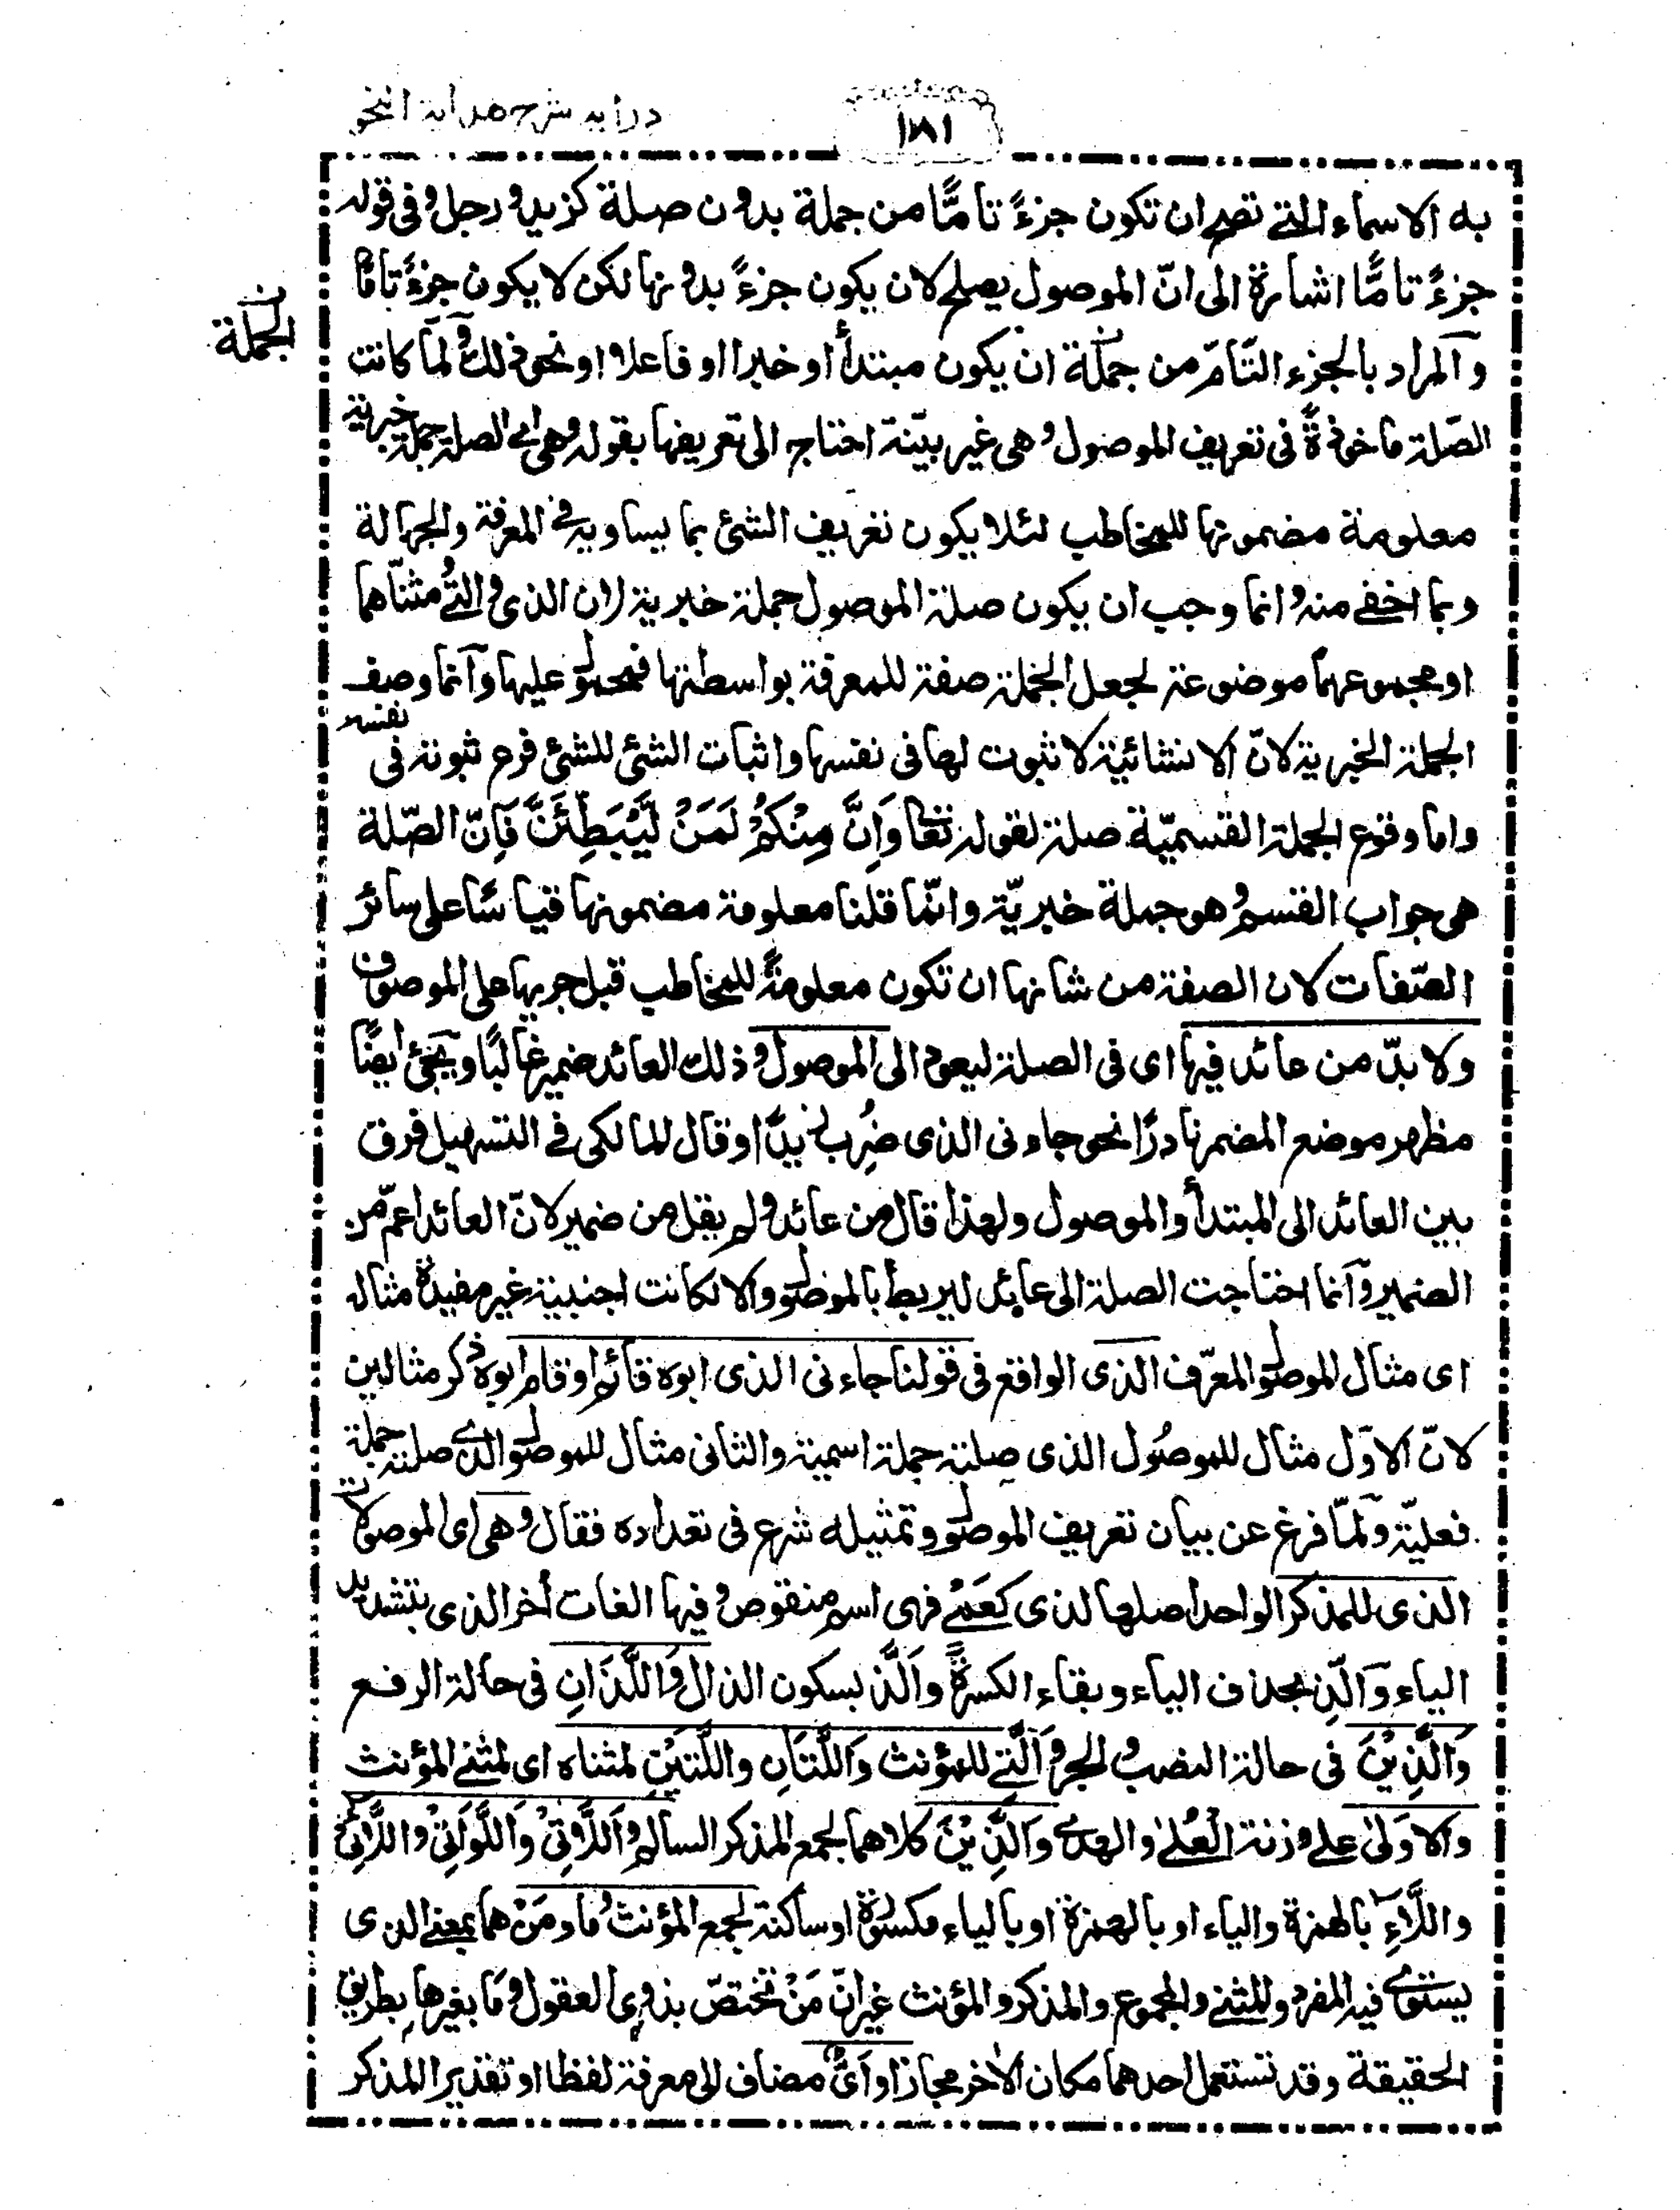 درايه شرح هداية النحو
١٨١
به الاسماء التى تصلح ان تكون جزءً تامًّا من جملة بدون صلة كزيد و رجل و فى قوله
جزءً تامًّا اشارة الى انّ الموصول يصلح لان يكون جزءً بدونها لكن لا يكون جزءً تامًّا
والمراد بالجزء التّامّ من جملة ان يكون مبتدأ او خبرا او فاعلا او نحو ذلك و لمّا كانت
الجملة
الصّلة ماخوذةً فى تعريف الموصول و هى غير بيّنة احتاج الى تعريفها بقوله و هى اى الصلة جملة خبرية
معلومة مضمونها للمخاطب لئلا يكون تعريف الشئ بما يساويه فى المعرفة والجهالة
وبما اخفى منه و انما وجب ان يكون صلة الموصول جملة خبرية لان الذى و التى و مثنّاهما
او مجموعهما موضوعة لجعل الجملة صفة للمعرفة بواسطتها عليها وانما وصف
الجملة الخبرية لانّ الانشائيّة لا ثبوت لها فى نفسها واثبات الشئ للشئ فرع ثبوته فى نفسه
واما وقوع الجملة القسميّة صلة لقوله تعا وَاِنَّ مِنْكُمْ لَمَنْ لَّيُبَطِّئَنَّ فَاِنّ الصّلة
هى جواب القسم و هو جملة خبريّة وانّما قلنا معلومة مضمونها قياسًا على سائر
الصّفات لان الصفة من شانها ان تكون معلومةً للمخاطب قبل جريها على الموصوف
ولا بدّ من عائد فيها اى فى الصلة ليعود الى الموصول و ذلك العائد ضمير غالبًا و يجئ ايضًا
مظهر موضع المضمر نادرًا نحو جاءنى الذى ضُرِب زيدًا و قال المالكى فى التسهيل فرق
بين العائد الى المبتدأ والموصول ولهذا قال من عائد و لم يقل من ضمير لانّ العائد اعمّ من
الضمير و انما احتاجت الصلة الى عائد ليربط بالموصول والا لكانت اجنبية غير مفيدة مثاله
اى مثال الموصول المعرّف الذى الواقع فى قولنا جاءنى الذى ابوه قائم او قام ابوه ذكر مثالين
لانّ الاوّل مثال للموصول الذى صلته جملة اسمية والثانى مثال للموصول الذى صلته جملة
فعليّة ولمّا فرغ عن بيان تعريف الموصول و تمثيله شرع فى تعداده فقال و هى اى الموصولات
الذى للمذكر الواحد اصلها لذى كعَمِىْ فهى اسم منقوص و فيها الغات أخر الذى بتشديد
الياء وَالَّذِ بحذف الياء وبقاء الكسرة وَالَّذْ بسكون الذال وَاللَّذَانِ فى حالة الرفع
وَالَّذِيْنَ فى حالة النصب و الجر و اَلَّتِىْ للمؤنث وَاللَّتَانِ واللَّتَيْنِ لمثناه اى لمثنى المؤنث
والاُولىٰ على وزنة الْعُلىٰ والهدى وَالَّذِيْنَ كلاهما لجمع المذكر السالم و اَللَّاتِىْ وَاللَّوَاتِىْ واللَّائِىْ
واللَّاءِ بالهمزة والياء او بالهمزة او بالياء مكسورة او ساكنة لجمع المؤنث و مَا و مَنْ هما بمعنى الذى
يستوى فيه المفرد والمثنى والمجموع والمذكر والمؤنث غير انّ مَنْ تختصّ بذوى العقول و مَا بغيرها بطريق
الحقيقة وقد تستعمل احدهما مكان الأخر مجازا و اَىٌّ مضاف الى معرفة لفظا او تقديرا المذكر